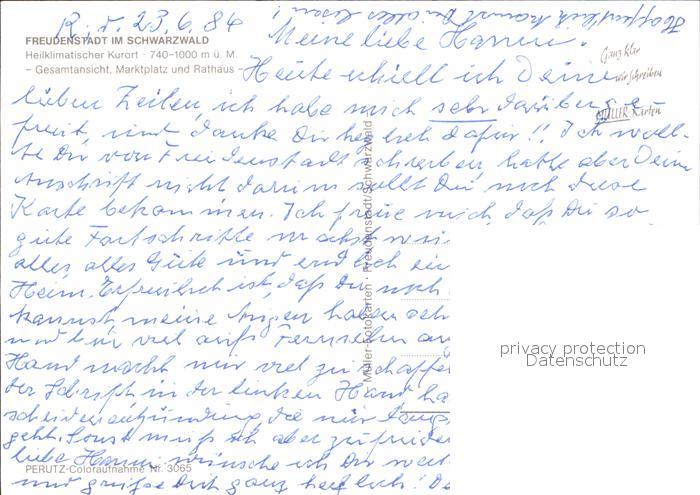 Hoffentlich kannst Du alles lesen!
R., d. 23.6.84
FREUDENSTADT IM SCHWARZWALD
Heilklimatischer Kurort · 740–1000 m ü. M.
– Gesamtansicht, Marktplatz und Rathaus
Meine liebe Hanni.
Ganz klar
wir schreiben
MÜLLER Karten
Heute erhielt ich Deine
lieben Zeilen ich habe mich sehr darüber ge
freut, und danke Dir herzlich dafür!! Ich woll-
te Dir von Freudenstadt schreiben, hatte aber Deine
Anschrift nicht darum sollst Du noch diese
Karte bekommen. Ich freue mich, daß Du so
gute Fortschritte machst
alles, alles Gute und endlich ein
Heim. Erfreulich ist, daß Du noch
kannst, meine Augen haben
und bin viel aufs Fernsehen an
Hand macht mir viel zu schaffe
der Schrift in der linken Hand ha
scheidenentzündung die nur langs
geht. Sonst muß ich aber zufriede
liebe Hanni wünsche ich Dir
und grüße Dich ganz herzlich!
Müller-Fotokarten · Freudenstadt/Schwarzwald
PERUTZ-Coloraufnahme Nr. 3065
privacy protection
Datenschutz